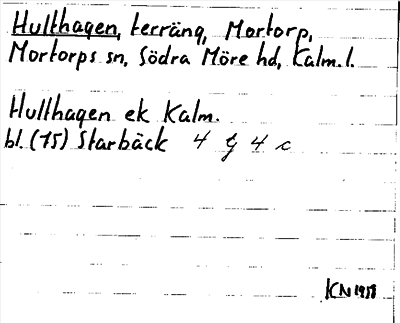 Hulthagen, terräng, Mortorp,
Mortorps sn, Södra Möre hd, Kalm. l.
Hulthagen ek Kalm.
bl. (75) Starbäck 4 G 4 c
KN 1958